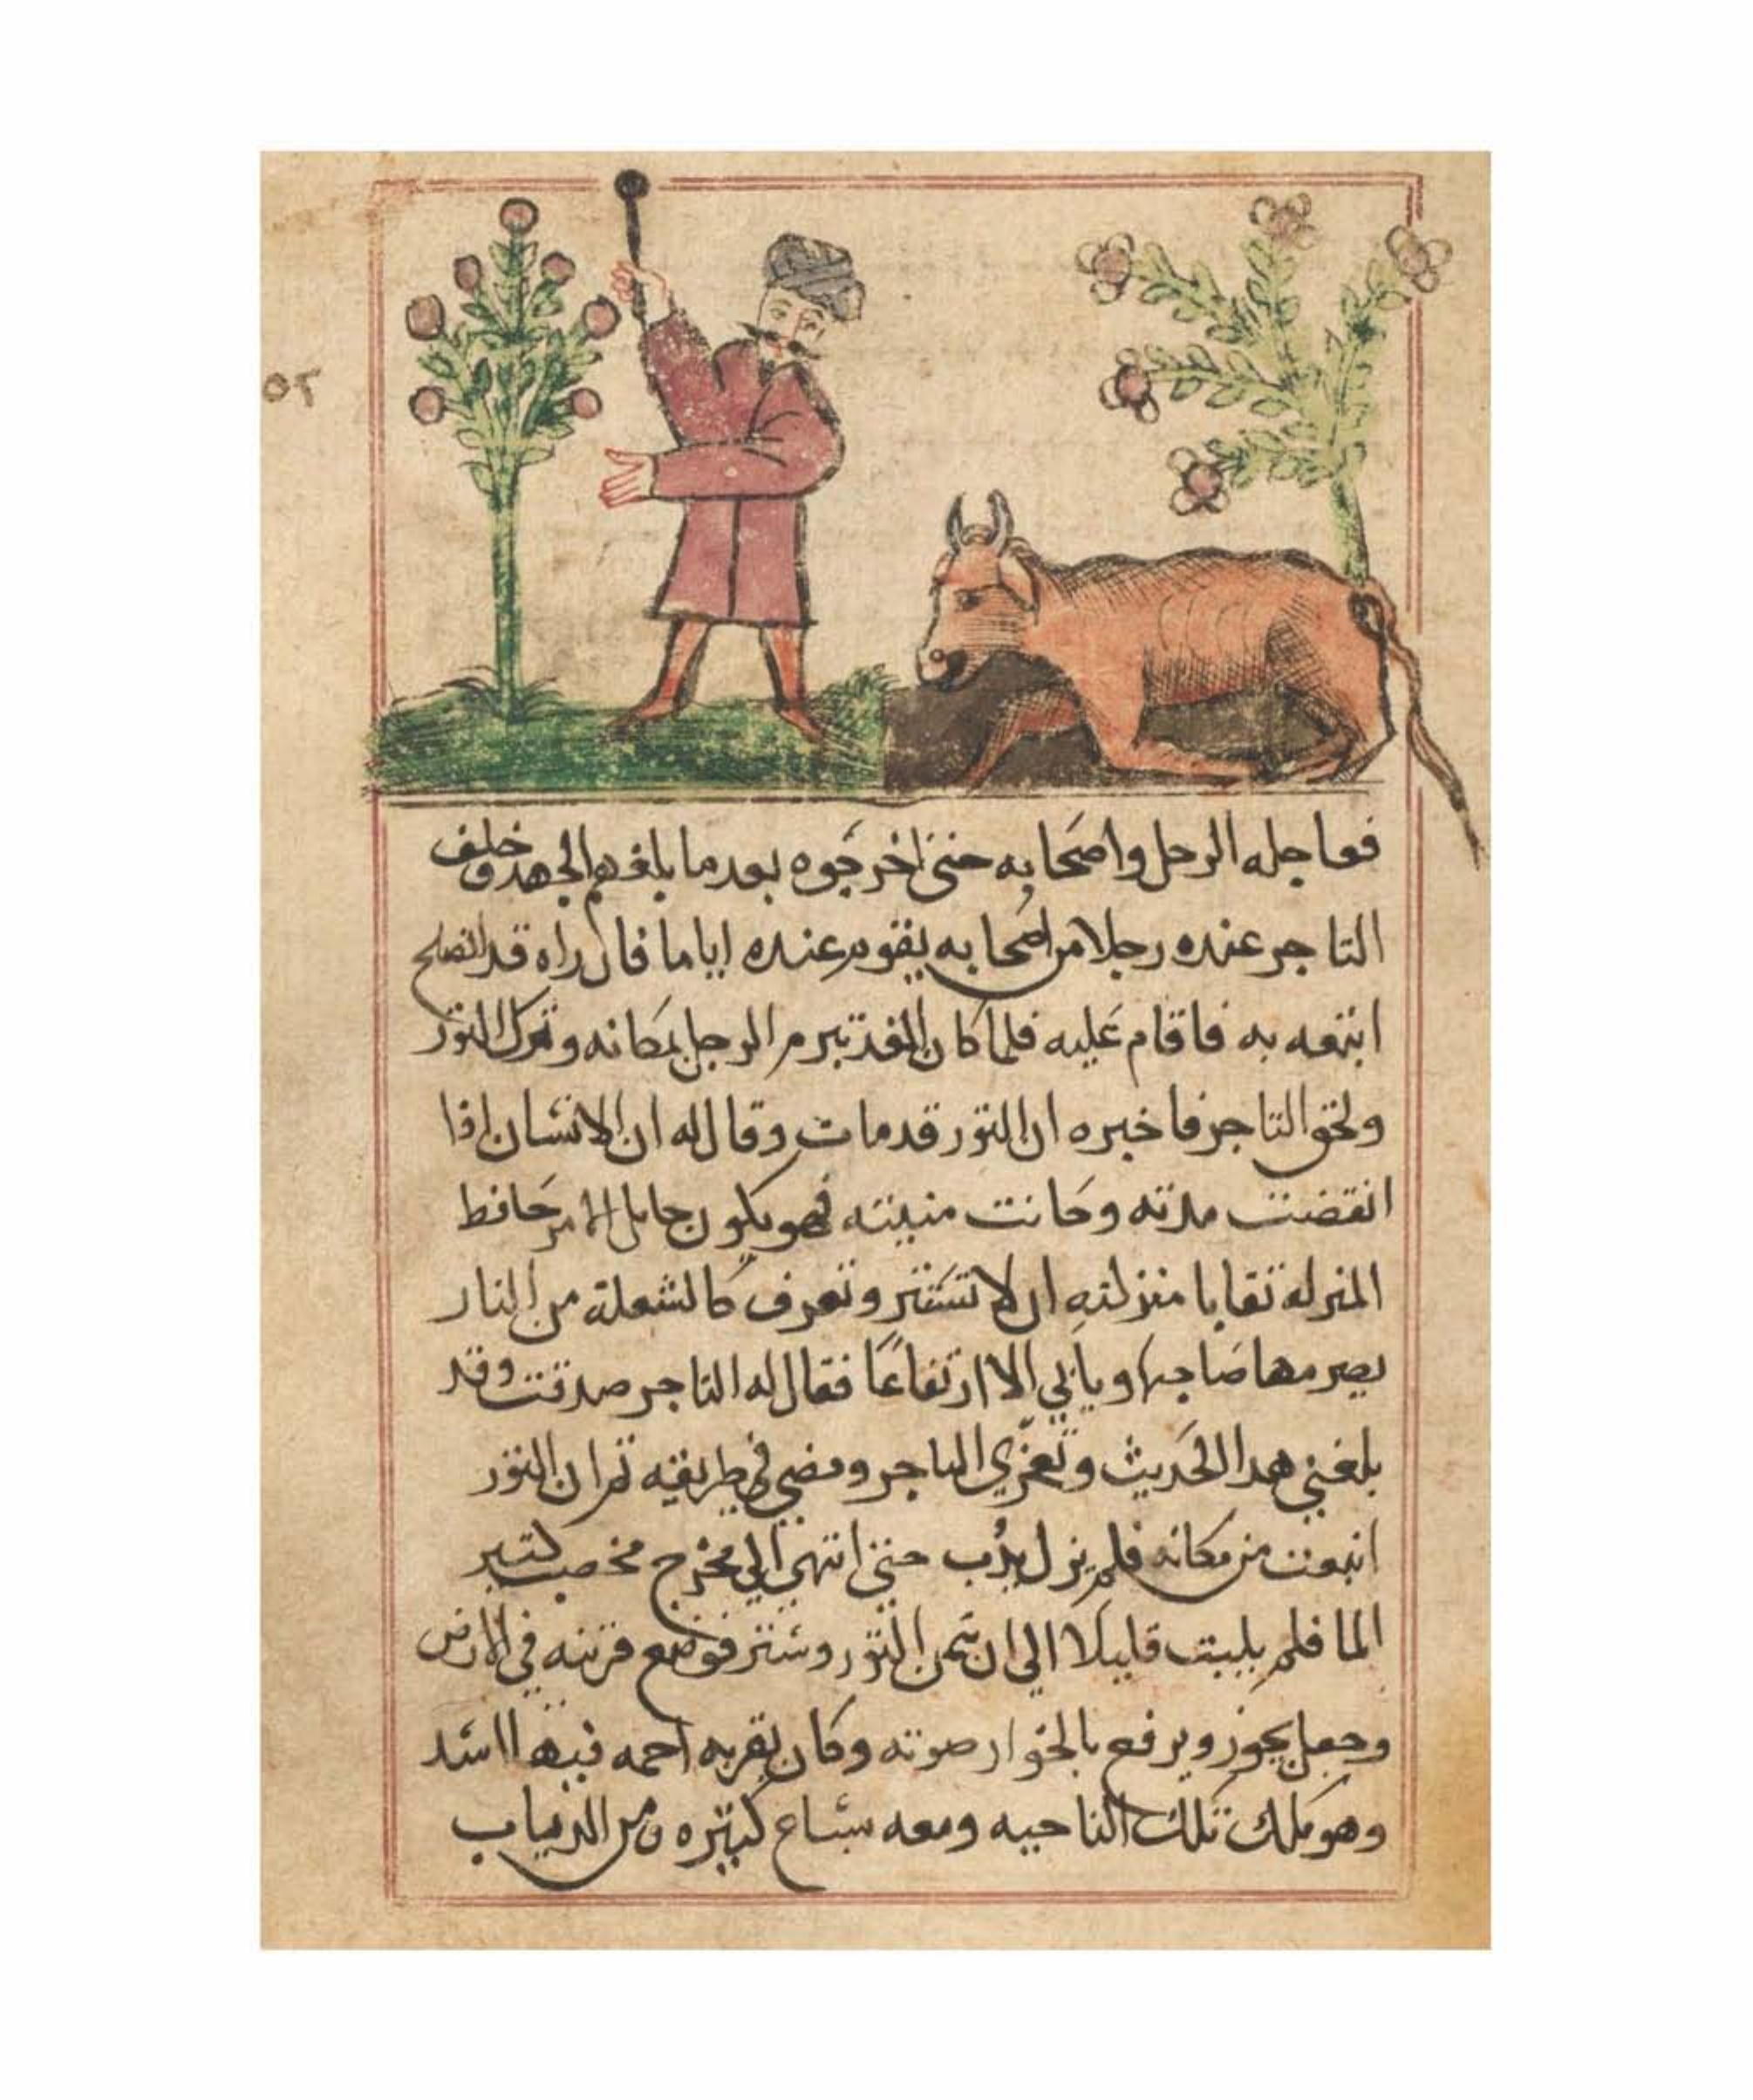 ٥٢
فعاجله الرجل واصحابه حتى اخرجوه بعدما بلغهم الجهد وخلف
التاجر عنده رجلا من اصحابه يقوم عنده اياما فان راه قد انصلح
اتبعه به فاقام عليه فلما كان الغد تبرم الرجل بمكانه وترك الثور
ولحق التاجر فاخبره ان الثور قد مات وقال له ان الانسان اذا
انقضت مدته وحانت منيته فهو يكون حامل الامر حافظ
المنزله تقابا منزلته ان لا تستتر وتعرف كالشعلة من النار
يصرمها صاحبها ويابي الا ارتفاعًا فقال له التاجر صدقت وقد
بلغني هدا الحديث وتعزي التاجر ومضي في طريقه ثم ان الثور
انبعث من مكانه فلم يزل يدُب حتى انتهي الي مخرج مخصب كتير
الما فلم يلبت قليلا الي ان سمن الثور وشتر فوضع قرنه في الارض
وجعل يخور ويرفع بالخوار صوته وكان بقربه اجمه فيها اسد
وهو ملك تلك الناحيه ومعه سباع كتيره من الدياب